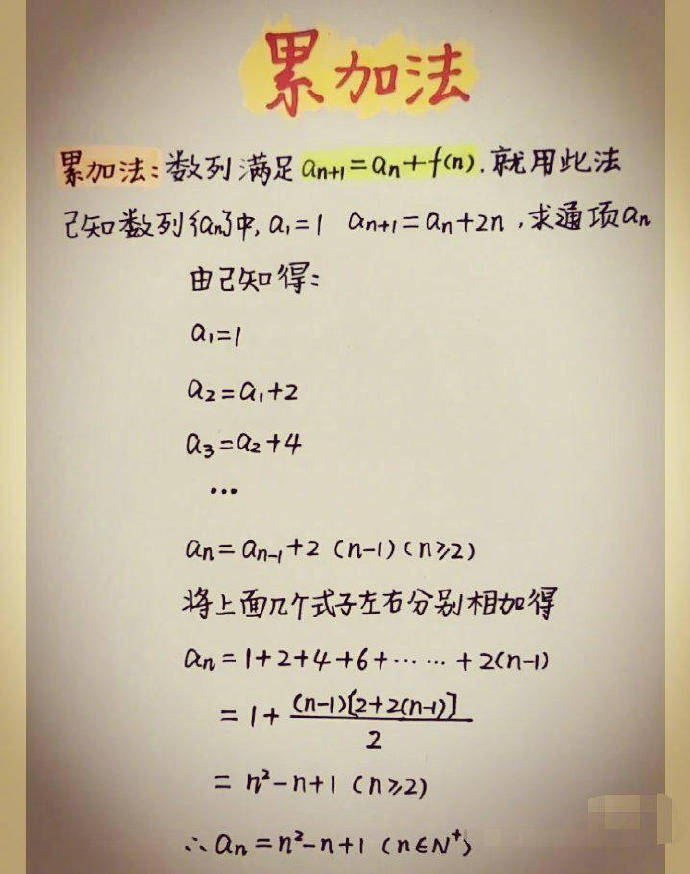 累加法
累加法:数列满足 aₙ₊₁=aₙ+f(n).就用此法
已知数列{aₙ}中, a₁=1 aₙ₊₁=aₙ+2n ,求通项aₙ
由已知得:
a₁=1
a₂=a₁+2
a₃=a₂+4
...
aₙ=aₙ₋₁+2 (n-1) (n≥2)
将上面几个式子左右分别相加得
aₙ=1+2+4+6+……+2(n-1)
=1+ (n-1)[2+2(n-1)] / 2
= n²-n+1 (n≥2)
∴aₙ=n²-n+1 (n∈N⁺)